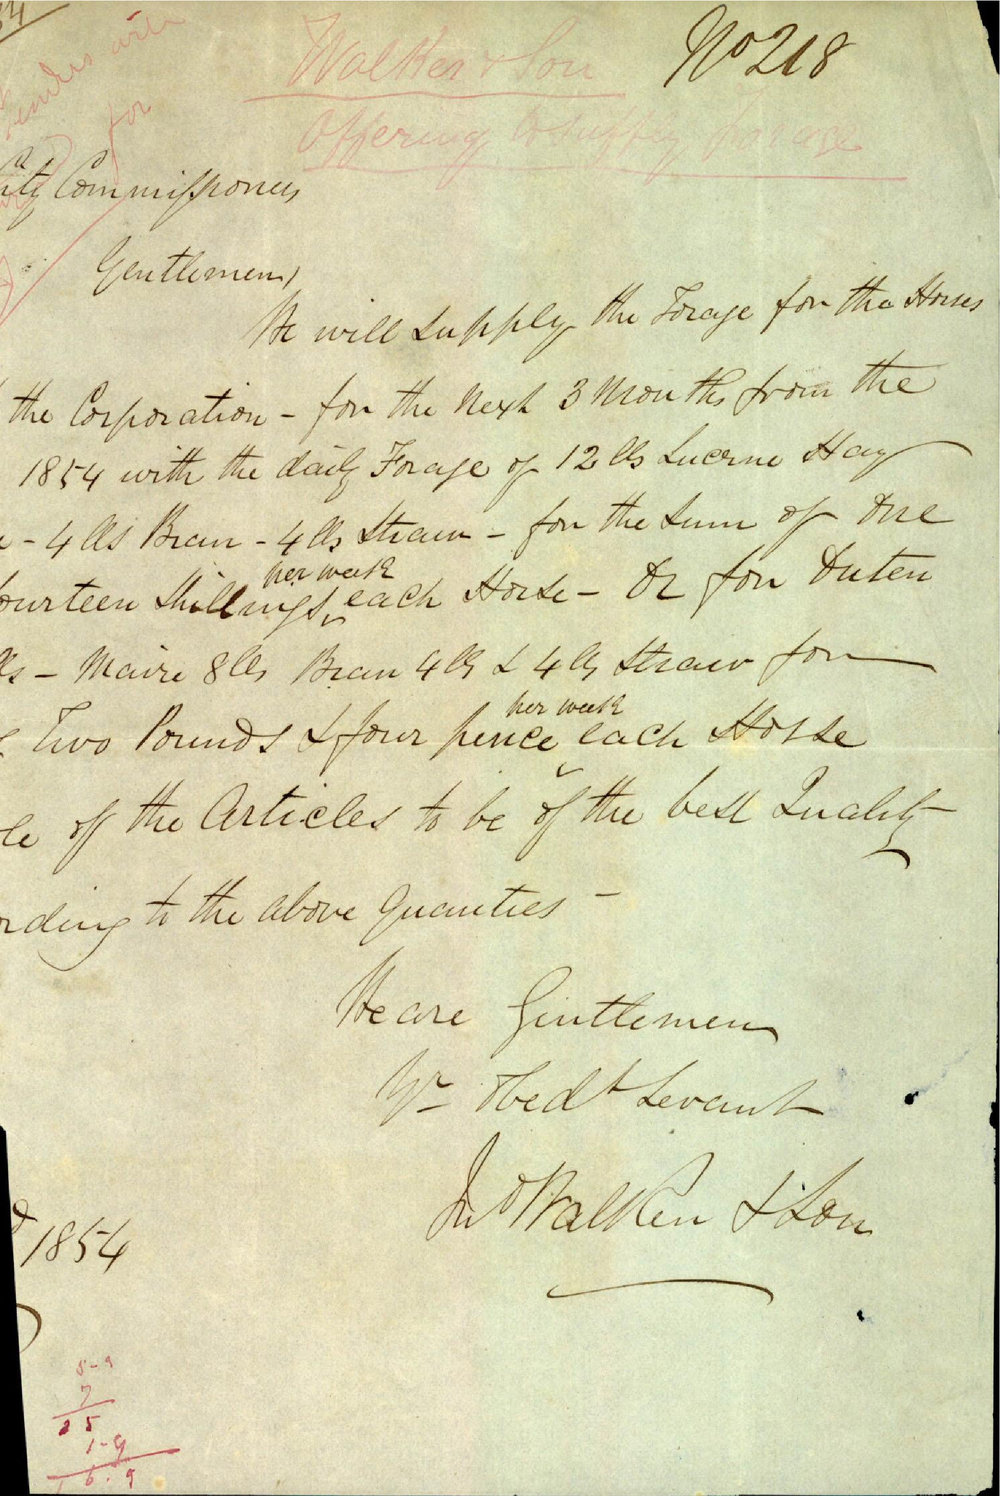 54
Walker & Son
No 218
Offering to supply forage
tenders with
for
City Commissioners
Gentlemen,
We will supply the Forage for the Horses
the Corporation - for the Next 3 Months from the
1854 with the daily Forage of 12 lbs Lucerne Hay
- 4 lbs Bran - 4 lbs Straw - for the Sum of One
ourteen Shillings per week each Horse - Or for Oaten
lbs - Maize 8 lbs Bran 4 lbs & 4 lbs Straw for
Two Pounds & four pence per week each Horse
le of the Articles to be of the best Quality
ording to the above Quanties -
We are Gentlemen
Yr Obedt Sevant
Jno Walker & Son
1854
8-9
7
1-9
6.9